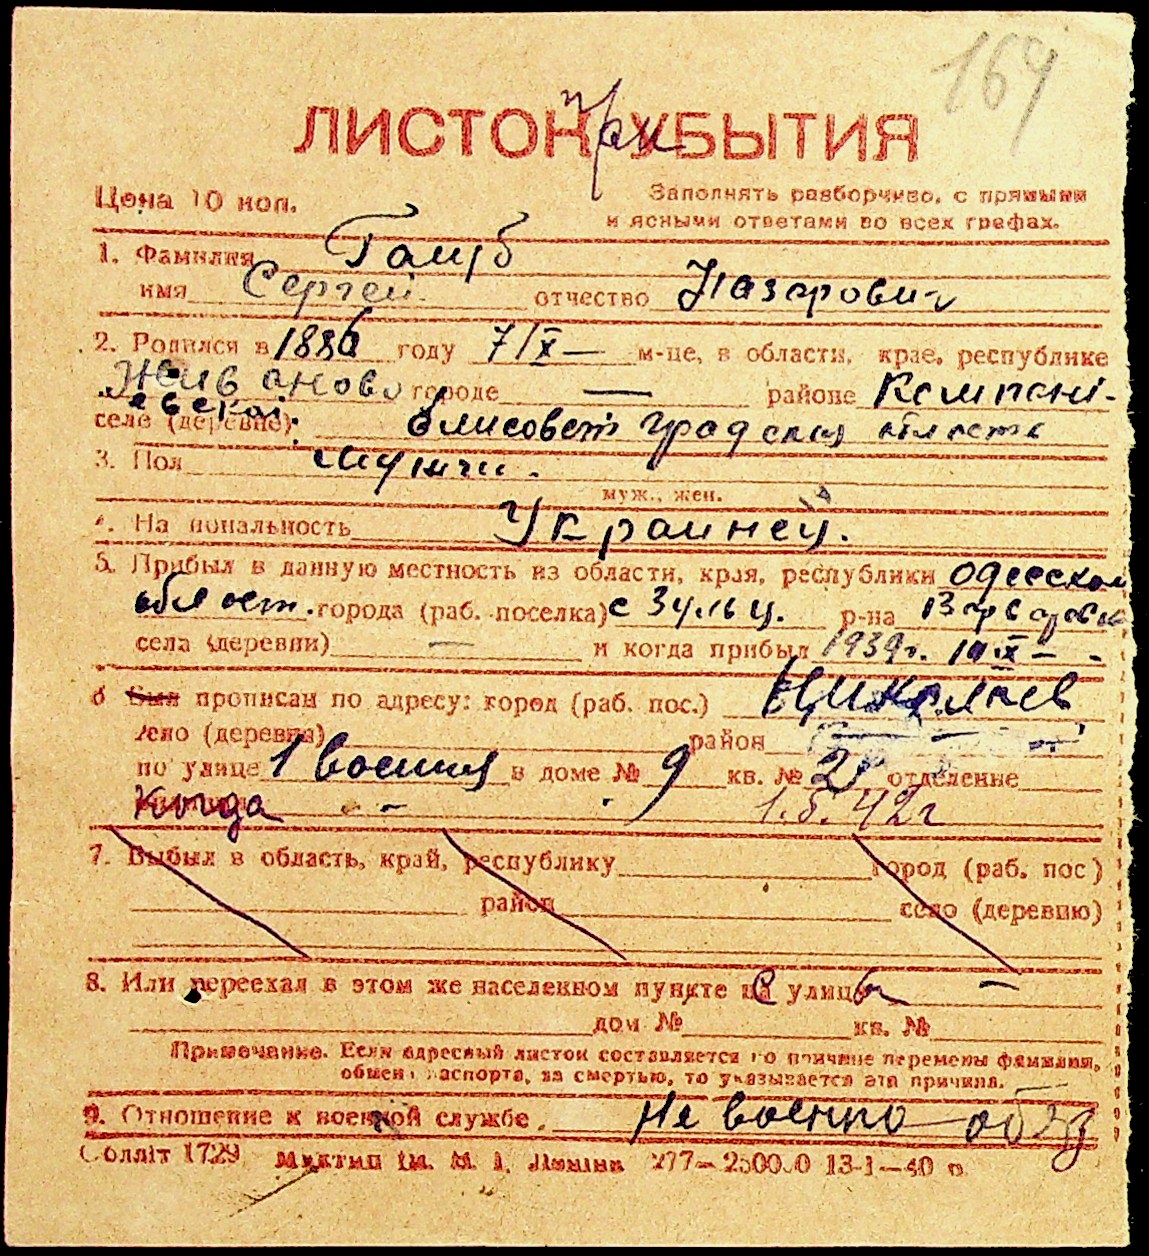 169
ЛИСТОК при УБЫТИЯ
Цена 10 коп.
Заполнять разборчиво, с прямыми
и ясными ответами во всех графах.
1. Фамилия Голуб
имя Сергей отчество Назарович
2. Родился в 1886 году 7/IX — м-це, в области, крае, республике
городе — районе Компані-
ївскої
селе (деревне) Елисоветградская область
3. Пол мужчи.
муж., жен.
4. Национальность Украинец.
5. Прибыл в данную местность из области, края, республики Одесской
област. города (раб. поселка) с Зульц. р-на Варваровск
села (деревни) — и когда прибыл 1939 г. 10 IX —
6 Был прописан по адресу: город (раб. пос.) Николаев
село (деревня) район
по улице 1 Военная в доме № 9 кв. № 2 отделение
Когда — 1.5.42 г
7. Выбыл в область, край, республику город (раб. пос)
район село (деревню)
8. Или переехал в этом же населенном пункте с улицы —
дом № кв. №
Примечание. Если адресный листок составляется по причине перемены фамилии,
обмен паспорта, за смертью, то указывается эта причина.
9. Отношение к военной службе Не военно-обяз
Соллiт 1729 Миктип iм. М. I. Ленiна 277—250000 13-I—40 р.